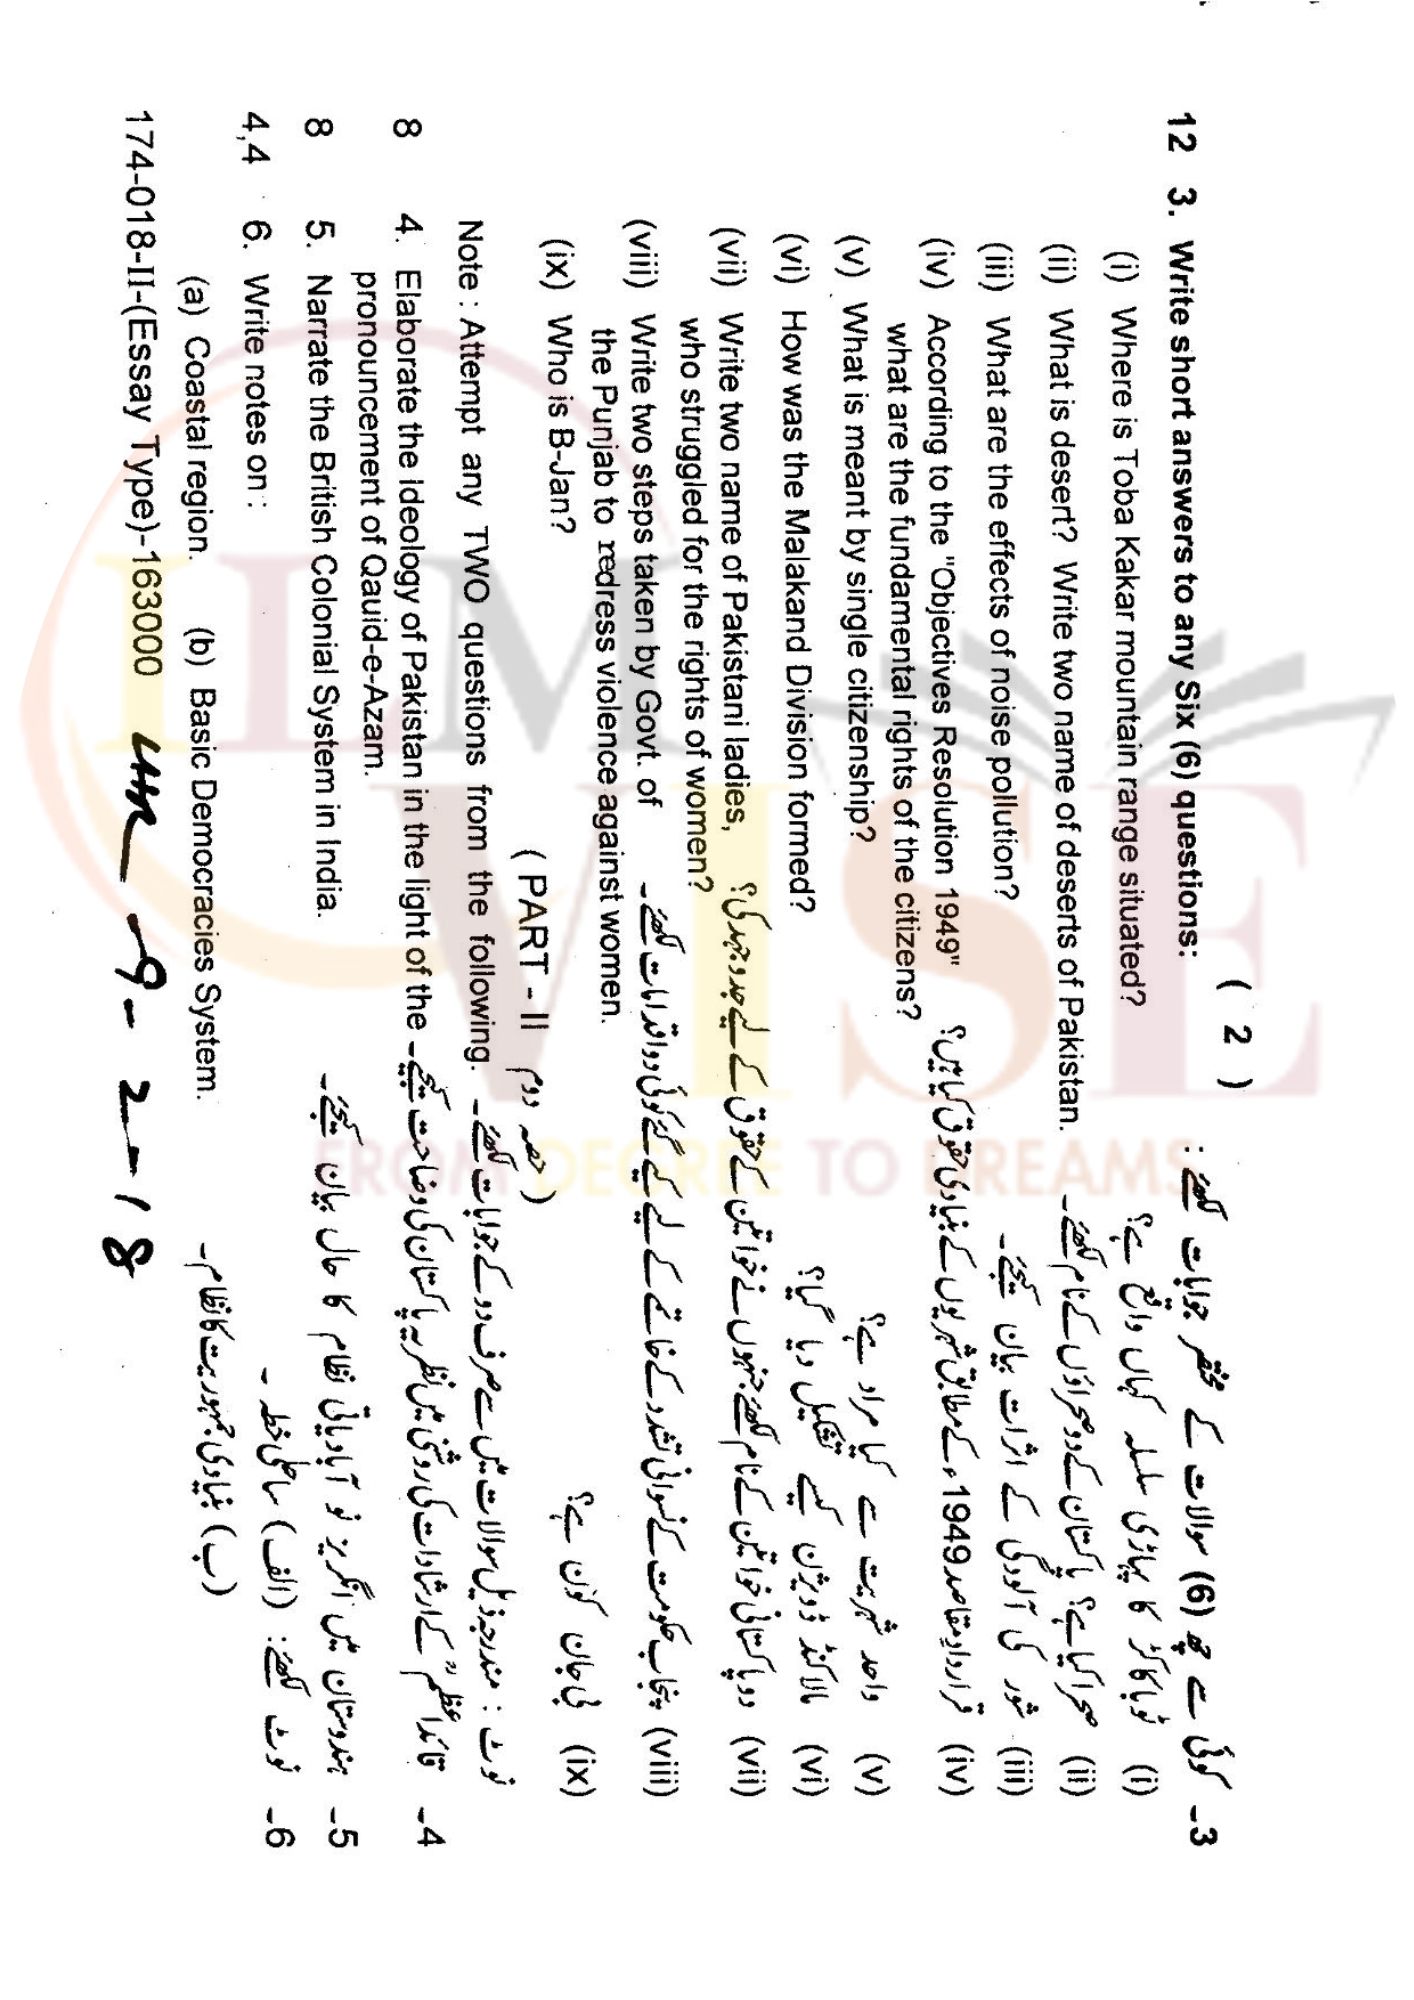 ( 2 )
12 3. Write short answers to any Six (6) questions: 3- کوئی سے چھ (6) سوالات کے مختصر جوابات لکھئے :
(i) Where is Toba Kakar mountain range situated? (i) ٹوبا کاکڑ کا پہاڑی سلسلہ کہاں واقع ہے؟
(ii) What is desert? Write two name of deserts of Pakistan. (ii) صحرا کیا ہے؟ پاکستان کے دو صحراؤں کے نام لکھئے۔
(iii) What are the effects of noise pollution? (iii) شور کی آلودگی کے اثرات بیان کیجئے۔
(iv) According to the "Objectives Resolution 1949" (iv) قراردادِ مقاصد 1949ء کے مطابق شہریوں کے بنیادی حقوق کیا ہیں؟
what are the fundamental rights of the citizens?
(v) What is meant by single citizenship? (v) واحد شہریت سے کیا مراد ہے؟
(vi) How was the Malakand Division formed? (vi) مالاکنڈ ڈویژن کیسے تشکیل دیا گیا؟
(vii) Write two name of Pakistani ladies, (vii) دو پاکستانی خواتین کے نام لکھئے جنہوں نے خواتین کے حقوق کے لیے جدوجہد کی؟
who struggled for the rights of women?
(viii) Write two steps taken by Govt. of (viii) پنجاب حکومت کے نسوانی تشدد کے خاتمے کے لیے کیے گئے کوئی دو اقدامات لکھئے۔
the Punjab to redress violence against women.
(ix) Who is B-Jan? (ix) بی جان کون ہے؟
( PART - II حصہ دوم )
Note : Attempt any TWO questions from the following. نوٹ : مندرجہ ذیل سوالات میں سے صرف دو کے جوابات لکھئے۔
8 4. Elaborate the ideology of Pakistan in the light of the 4- قائداعظمؒ کے ارشادات کی روشنی میں نظریہ پاکستان کی وضاحت کیجیے۔
pronouncement of Qauid-e-Azam.
8 5. Narrate the British Colonial System in India. 5- ہندوستان میں انگریز نو آبادیاتی نظام کا حال بیان کیجئے۔
4,4 6. Write notes on : 6- نوٹ لکھئے: (الف) ساحلی خطہ ۔
(a) Coastal region. (b) Basic Democracies System. (ب) بنیادی جمہوریت کا نظام۔
174-018-II-(Essay Type)-163000 LHR-9-2-18
ILM
VISE
FROM DEGREE TO DREAMS